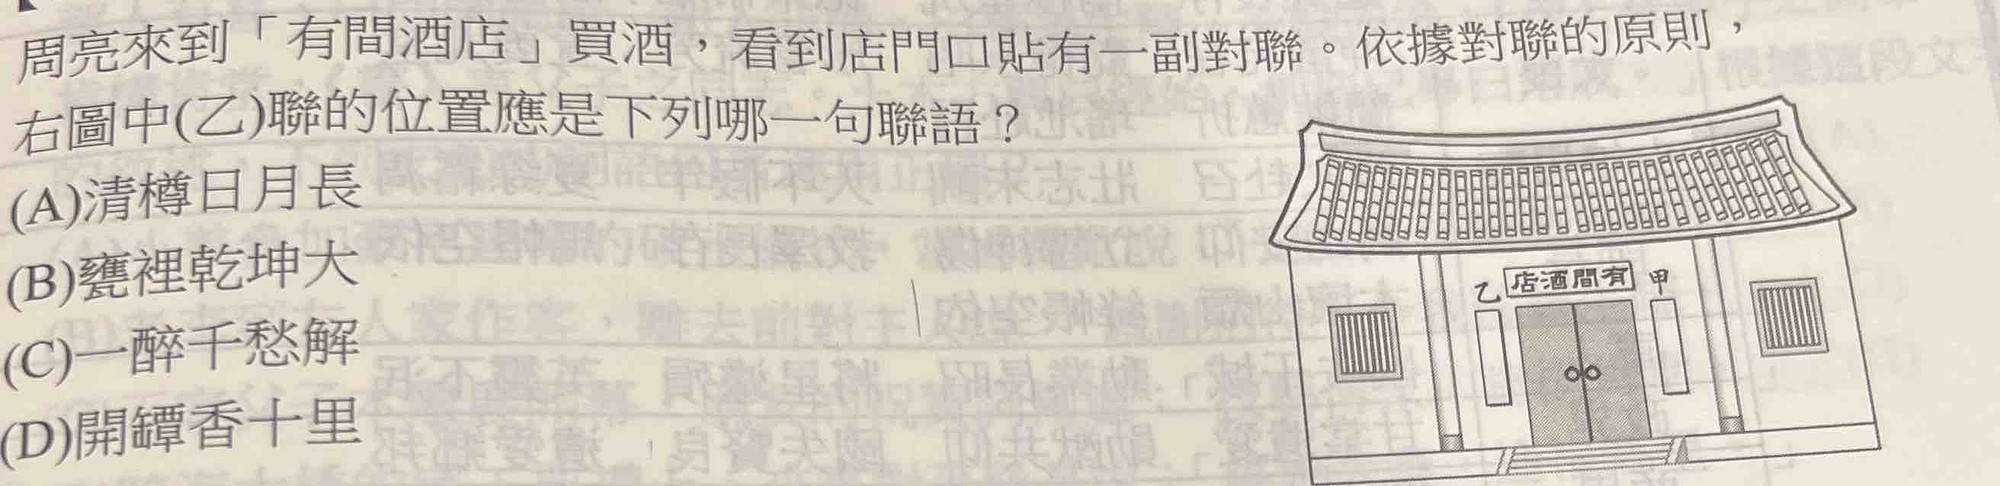 周亮來到「有間酒店」買酒，看到店門口貼有一副對聯。依據對聯的原則，
右圖中(乙)聯的位置應是下列哪一句聯語？
(A)清樽日月長
(B)甕裡乾坤大
(C)一醉千愁解
(D)開罈香十里
乙
店酒間有
甲